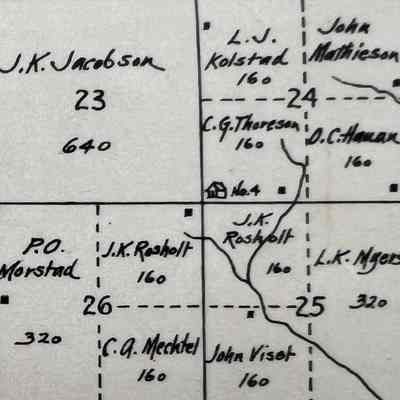 J.K. Jacobson
23
640
L.J.
Kolstad
160
John
Mathieson
24
C.G. Thoreson
160
D.C. Haman
160
No.4
P.O.
Morstad
320
J.K. Rosholt
160
26
C.A. Mechtel
160
J.K.
Rosholt
160
L.K. Myers
320
25
John Viset
160